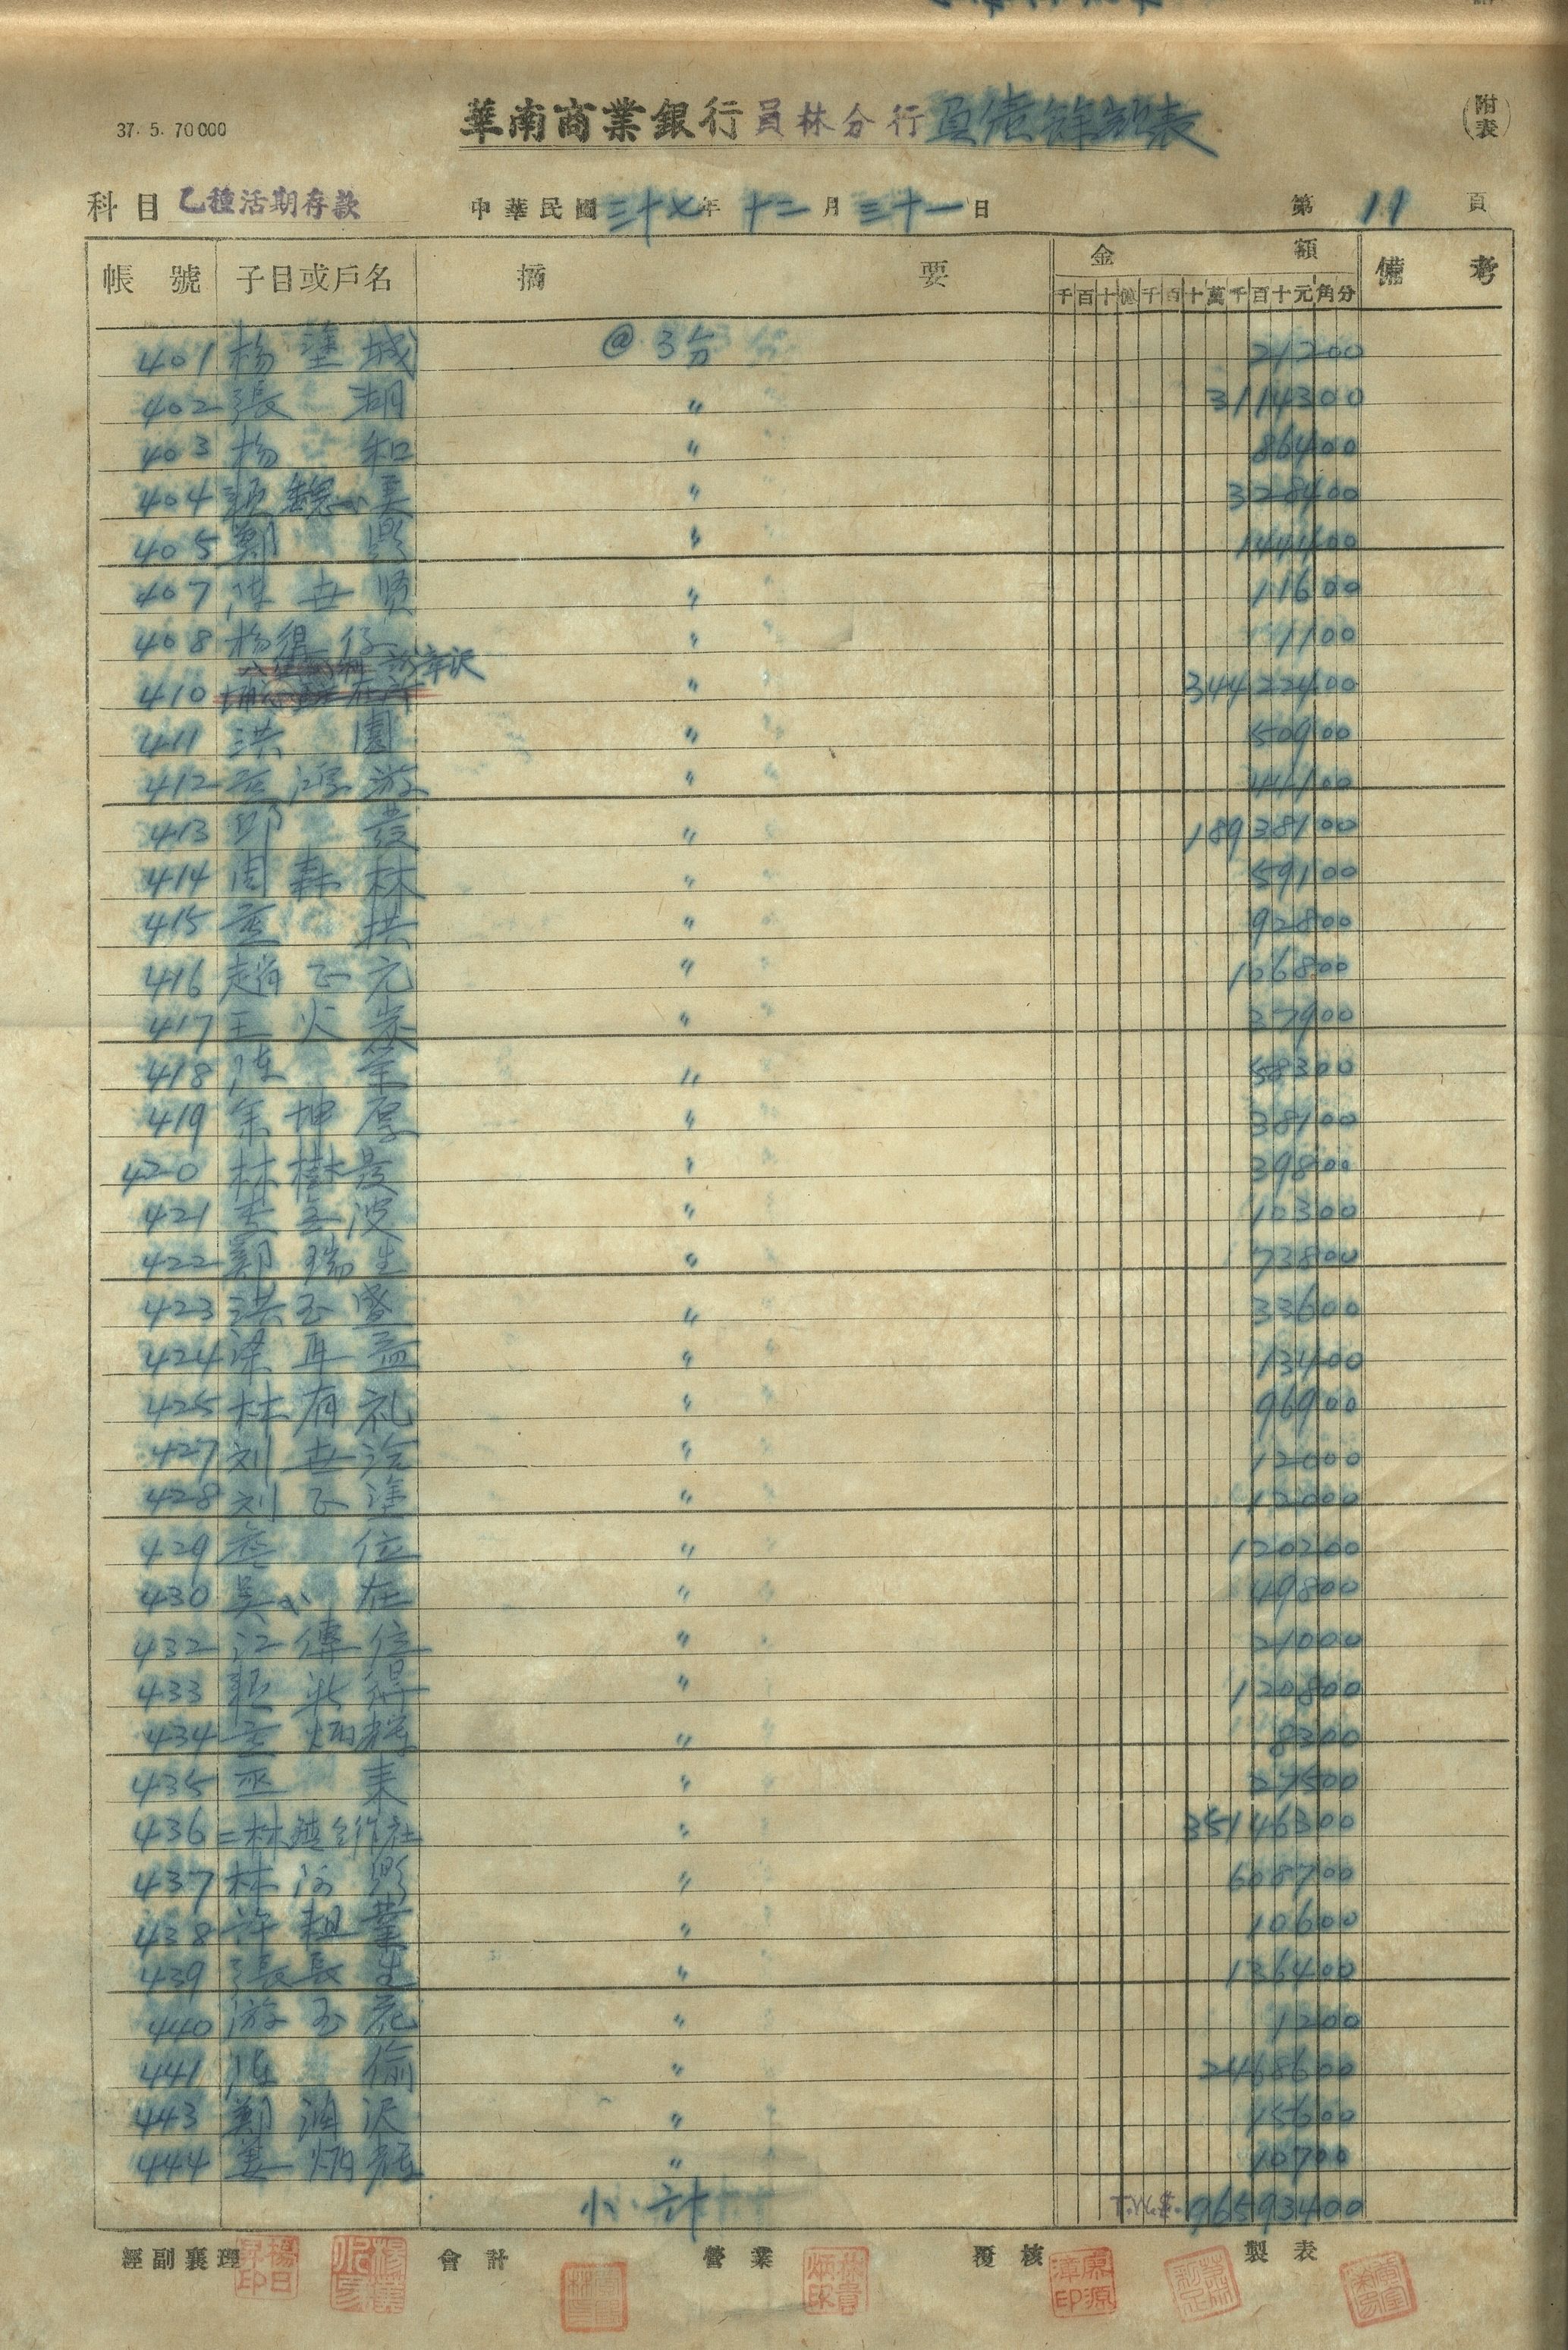 37. 5. 70000
華南商業銀行員林分行負債餘額表
(附表)
科目 乙種活期存款 中華民國三十七年十二月三十一日 第11頁
帳號 子目或戶名 摘要 金額 備考
千百十億千百十萬千百十元角分
401 楊塗城 @3分 21200
402 張湖 〃 3114300
403 楊和 〃 86400
404 〃 328400
405 鄭 〃 144400
407 陳世賢 〃 11600
408 楊得仔 〃 1100
410 〃 34422400
411 洪園 〃 50900
412 鴻游 〃 44100
413 邱發 〃 18938100
414 周森林 〃 59100
415 〃 92800
416 趙正元 〃 106800
417 王火炭 〃 37900
418 陳 〃 58300
419 余坤厚 〃 38100
420 林樹發 〃 39800
421 波 〃 10300
422 鄭瑞生 〃 73800
423 洪玉 〃 33600
424 梁再益 〃 13400
425 林有礼 〃 96900
427 刘世 〃 12000
428 刘正塗 〃 12000
429 位 〃 120200
430 吳小在 〃 49800
432 江傳 〃 21000
433 得 〃 120800
434 炳輝 〃 8300
435 巫来 〃 27500
436 二林鎮合作社 〃 35146300
437 林 〃 608700
438 許祖業 〃 10600
439 張長生 〃 136400
440 游玉花 〃 1200
441 陳偷 〃 2468600
443 鄭沢 〃 15600
444 姜炳 〃 10700
小計 96593400
經副襄理 會計 營業 覆核 製表